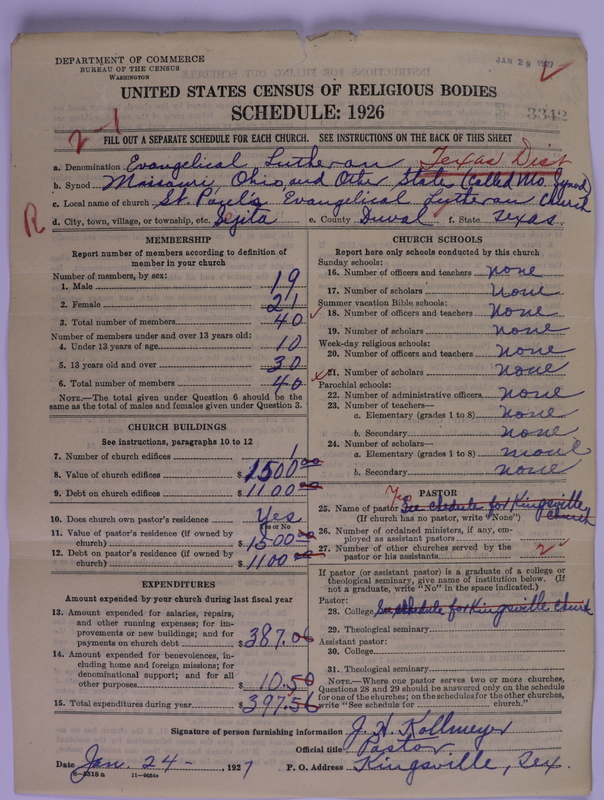 DEPARTMENT OF COMMERCE
BUREAU OF THE CENSUS
WASHINGTON
JAN 28 1927
UNITED STATES CENSUS OF RELIGIOUS BODIES
SCHEDULE: 1926
3342
2-1
FILL OUT A SEPARATE SCHEDULE FOR EACH CHURCH. SEE INSTRUCTIONS ON THE BACK OF THIS SHEET
a. Denomination Evangelical Lutheran Texas Dist
b. Synod Missouri, Ohio and Other State (Called Mo. Synod)
c. Local name of church St. Paul's Evangelical Lutheran Church
R
d. City, town, village, or township, etc. Sejita e. County Duval f. State Texas
MEMBERSHIP
Report number of members according to definition of member in your church
Number of members, by sex:
1. Male 19
2. Female 21
3. Total number of members 40
Number of members under and over 13 years old:
4. Under 13 years of age 10
5. 13 years old and over 30
6. Total number of members 40
NOTE.—The total given under Question 6 should be
same as the total of males and females given under Question 3.
CHURCH BUILDINGS
See instructions, paragraphs 10 to 12
7. Number of church edifices 1
8. Value of church edifices $ 1500.00
9. Debt on church edifices $ 1100.00
10. Does church own pastor's residence Yes
Yes or No
11. Value of pastor's residence (if owned by
church) $ 1500.00
12. Debt on pastor's residence (if owned by
church) $ 1100
EXPENDITURES
Amount expended by your church during last fiscal year
13. Amount expended for salaries, repairs,
and other running expenses; for im-
provements or new buildings; and for
payments on church debt $ 387.06
14. Amount expended for benevolences, in-
cluding home and foreign missions; for
denominational support; and for all
other purposes $ 10.50
15. Total expenditures during year $ 397.56
CHURCH SCHOOLS
Report here only schools conducted by this church
Sunday schools:
16. Number of officers and teachers none
17. Number of scholars None
Summer vacation Bible schools:
18. Number of officers and teachers None
19. Number of scholars none
Week-day religious schools:
20. Number of officers and teachers none
21. Number of scholars none
Parochial schools:
22. Number of administrative officers none
23. Number of teachers—
a. Elementary (grades 1 to 8) none
b. Secondary none
24. Number of scholars—
a. Elementary (grades 1 to 8) none
b. Secondary none
PASTOR
25. Name of pastor See schedule for Kingsville Church
(If church has no pastor, write "None")
26. Number of ordained ministers, if any, em-
ployed as assistant pastors
27. Number of other churches served by the
pastor or his assistants 2
If pastor (or assistant pastor) is a graduate of a college or
theological seminary, give name of institution below. (If
not a graduate, write "No" in the space indicated.)
Pastor:
28. College See schedule for Kingsville Church
29. Theological seminary
Assistant pastor:
30. College
31. Theological seminary
NOTE.—Where one pastor serves two or more churches,
Questions 28 and 29 should be answered only on the schedule
for one of the churches; on the schedules for the other churches,
write "See schedule for church."
Signature of person furnishing information J. H. Kollmeyer
Official title Pastor
Date Jan. 24 -, 1927 P. O. Address Kingsville, Tex.
8—5318 a 11—9624a